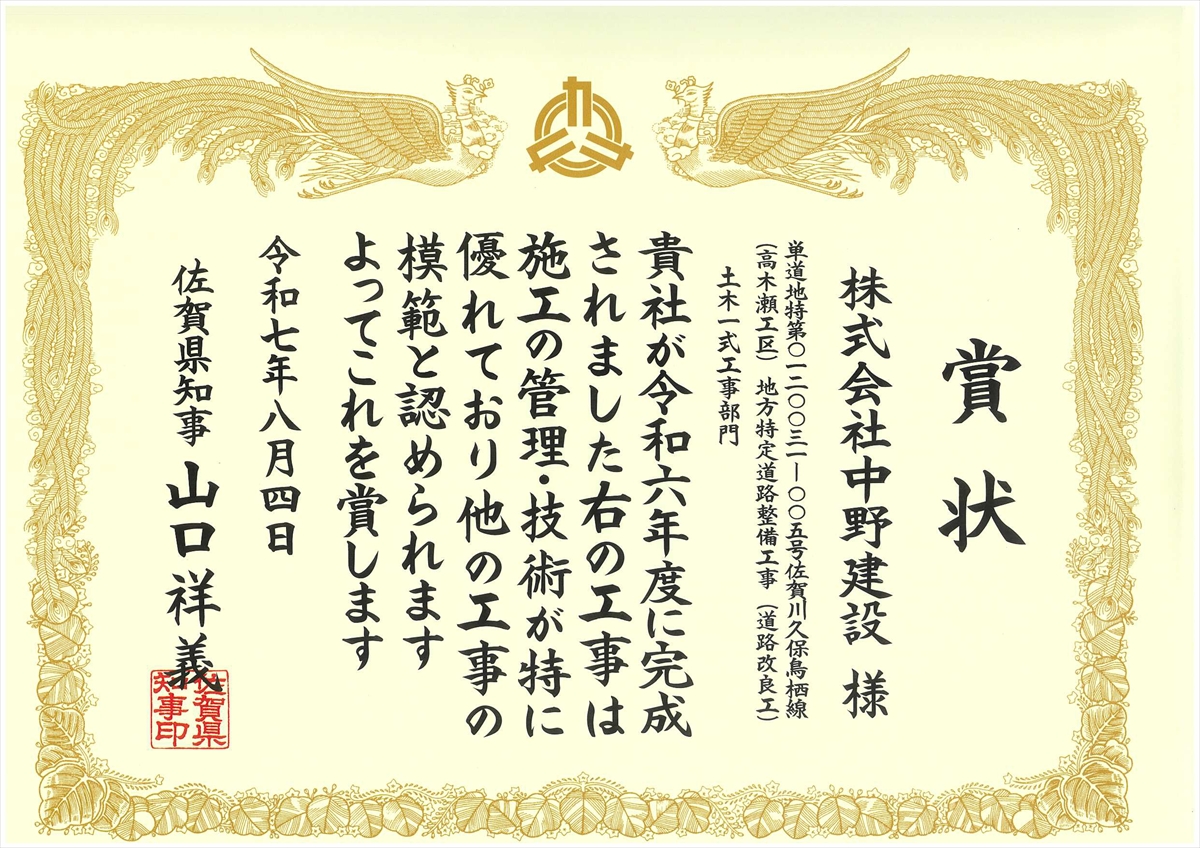 賞状
株式会社中野建設 様
単道地特第〇一二〇〇三一―〇〇五号佐賀川久保鳥栖線
(高木瀬工区) 地方特定道路整備工事 (道路改良工)
土木一式工事部門
貴社が令和六年度に完成
されました右の工事は
施工の管理・技術が特に
優れており他の工事の
模範と認められます
よってこれを賞します
令和七年八月四日
佐賀県知事 山口祥義
佐賀県
知事印